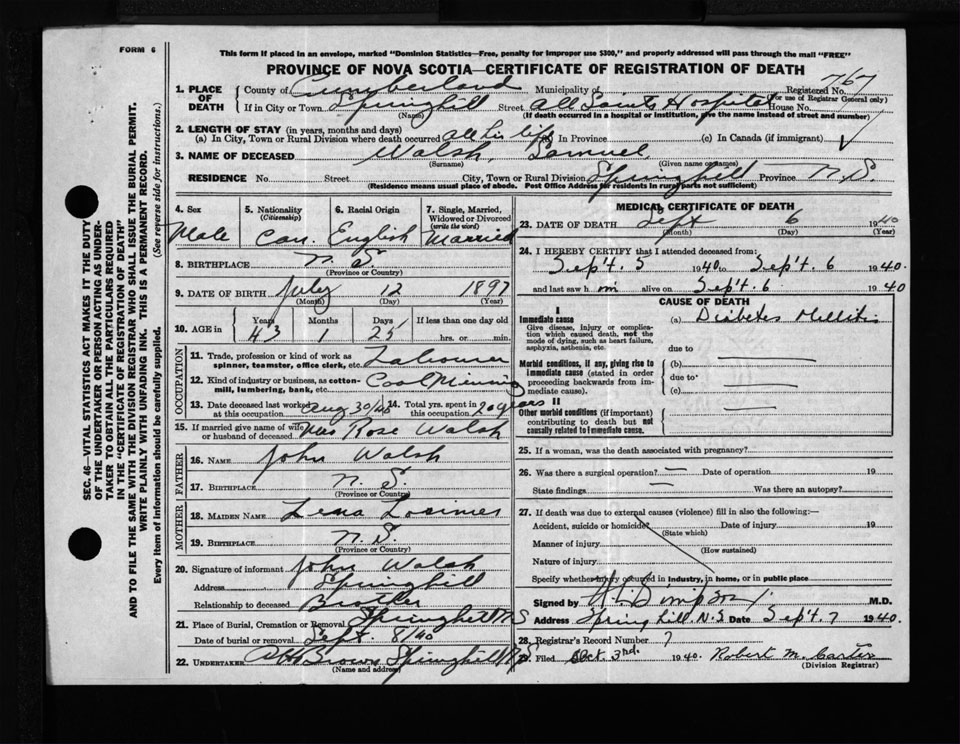 FORM 6
This form if placed in an envelope, marked "Dominion Statistics—Free, penalty for improper use $300," and properly addressed will pass through the mail "FREE"
PROVINCE OF NOVA SCOTIA—CERTIFICATE OF REGISTRATION OF DEATH
767
1. PLACE OF DEATH
County of Cumberland Municipality of Registered No.
(For use of Registrar General only)
If in City or Town Springhill Street All Saints Hospital House No.
(Name) (If death occurred in a hospital or institution, give the name instead of street and number)
2. LENGTH OF STAY (in years, months and days)
(a) In City, Town or Rural Division where death occurred all his life In Province (c) In Canada (if immigrant)
3. NAME OF DECEASED Walsh, Samuel
(Surname) (Given name or names)
RESIDENCE No. Street City, Town or Rural Division Springhill Province N.S.
(Residence means usual place of abode. Post Office Address for residents in rural parts not sufficient)
4. Sex
Male
5. Nationality (Citizenship)
Can.
6. Racial Origin
English
7. Single, Married, Widowed or Divorced (write the word)
Married
8. BIRTHPLACE N.S.
(Province or Country)
9. DATE OF BIRTH July 12 1897
(Month) (Day) (Year)
10. AGE in
Years Months Days If less than one day old
43 1 25 hrs. or min.
OCCUPATION
11. Trade, profession or kind of work as spinner, teamster, office clerk, etc. Labourer
12. Kind of industry or business, as cotton-mill, lumbering, bank, etc. Coal Mining
13. Date deceased last worked at this occupation Aug 30/40
14. Total yrs. spent in this occupation 20 years
15. If married give name of wife or husband of deceased Mrs Rose Walsh
FATHER
16. Name John Walsh
17. Birthplace N.S.
(Province or Country)
MOTHER
18. Maiden Name Lena
19. Birthplace N.S.
(Province or Country)
20. Signature of informant John Walsh
Address Springhill
Relationship to deceased Brother
21. Place of Burial, Cremation or Removal Springhill NS
Date of burial or removal Sept 8/40
22. Undertaker Brown Springhill NS
(Name and address)
MEDICAL CERTIFICATE OF DEATH
23. DATE OF DEATH Sept 6 1940
(Month) (Day) (Year)
24. I HEREBY CERTIFY that I attended deceased from:
Sep't. 5 1940 to Sep't. 6 1940.
and last saw him alive on Sep't. 6 1940
CAUSE OF DEATH
I
Immediate cause (a) Diabetes Mellitis
Give disease, injury or complication which caused death, not the mode of dying, such as heart failure, asphyxia, asthenia, etc.
due to
Morbid conditions, if any, giving rise to immediate cause (stated in order proceeding backwards from immediate cause).
(b)
due to
(c)
II
Other morbid conditions (if important) contributing to death but not causally related to immediate cause.
25. If a woman, was the death associated with pregnancy?
26. Was there a surgical operation? — Date of operation 19
State findings — Was there an autopsy?
27. If death was due to external causes (violence) fill in also the following:—
Accident, suicide or homicide Date of injury 19
(State which)
Manner of injury
(How sustained)
Nature of injury
Specify whether injury occurred in industry, in home, or in public place
Signed by Simpson M.D.
Address Springhill N.S Date Sep't. 7 1940.
28. Registrar's Record Number 7
29. Filed Oct 3rd. 1940. Robert M. Carter
(Division Registrar)
SEC. 46—VITAL STATISTICS ACT MAKES IT THE DUTY
OF THE UNDERTAKER OR PERSON ACTING AS UNDER-
TAKER TO OBTAIN ALL THE PARTICULARS REQUIRED
IN THE "CERTIFICATE OF REGISTRATION OF DEATH"
AND TO FILE THE SAME WITH THE DIVISION REGISTRAR WHO SHALL ISSUE THE BURIAL PERMIT.
WRITE PLAINLY WITH UNFADING INK. THIS IS A PERMANENT RECORD.
Every item of information should be carefully supplied. (See reverse side for instructions.)